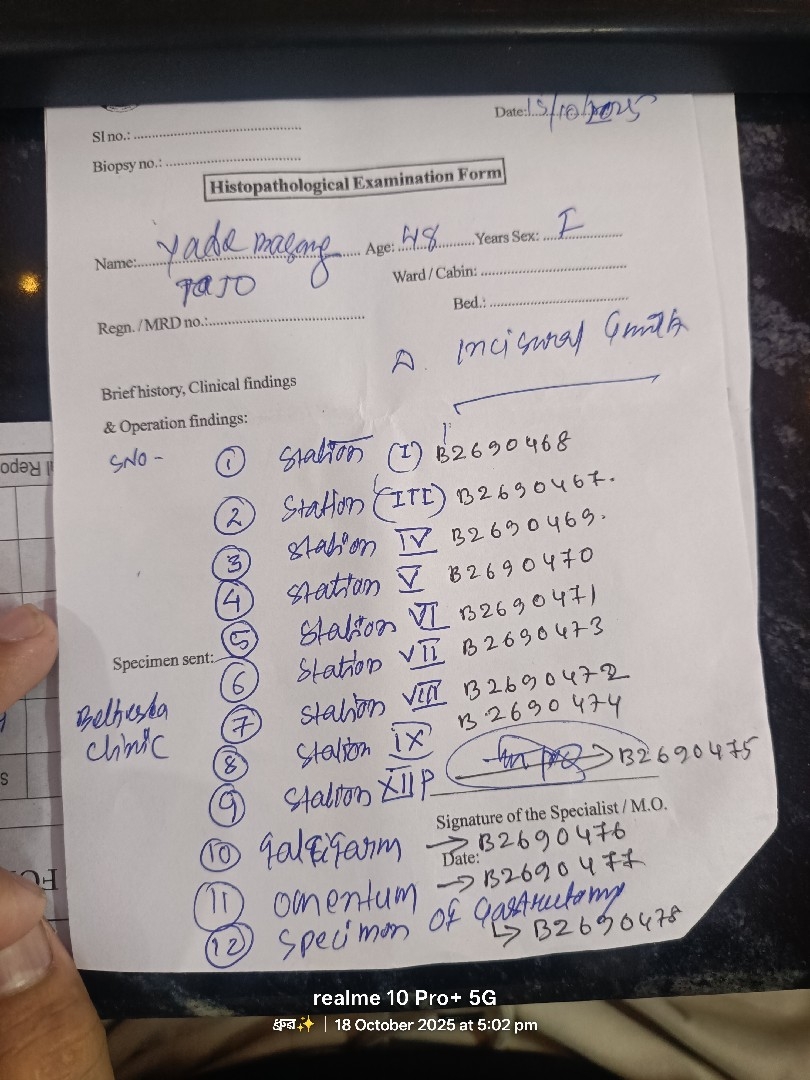 Date: 15/10/2025
Sl no.:
Biopsy no.:
Histopathological Examination Form
Name: Yade Age: 48 Years Sex: F
TaJO
Ward / Cabin:
Regn. / MRD no.:
Bed.:
Incisural
Brief history, Clinical findings
& Operation findings:
SNO - ① Station (I) B2690468
② Station (III) B2690467.
③ Station IV B2690469.
④ Station V B2690470
⑤ Station VI B2690471
Specimen sent:
⑥ Station VII B2690473
⑦ Station VIII B2690472
Clinic
⑧ Station IX B2690474
⑨ Station XII P → B2690475
Signature of the Specialist / M.O.
⑩ falcifarm → B2690476
Date:
⑪ omentum → B2690477
⑫ Specimen of Gastrectomy
↳ B2690478
realme 10 Pro+ 5G
ধ্রুব✨ | 18 October 2025 at 5:02 pm